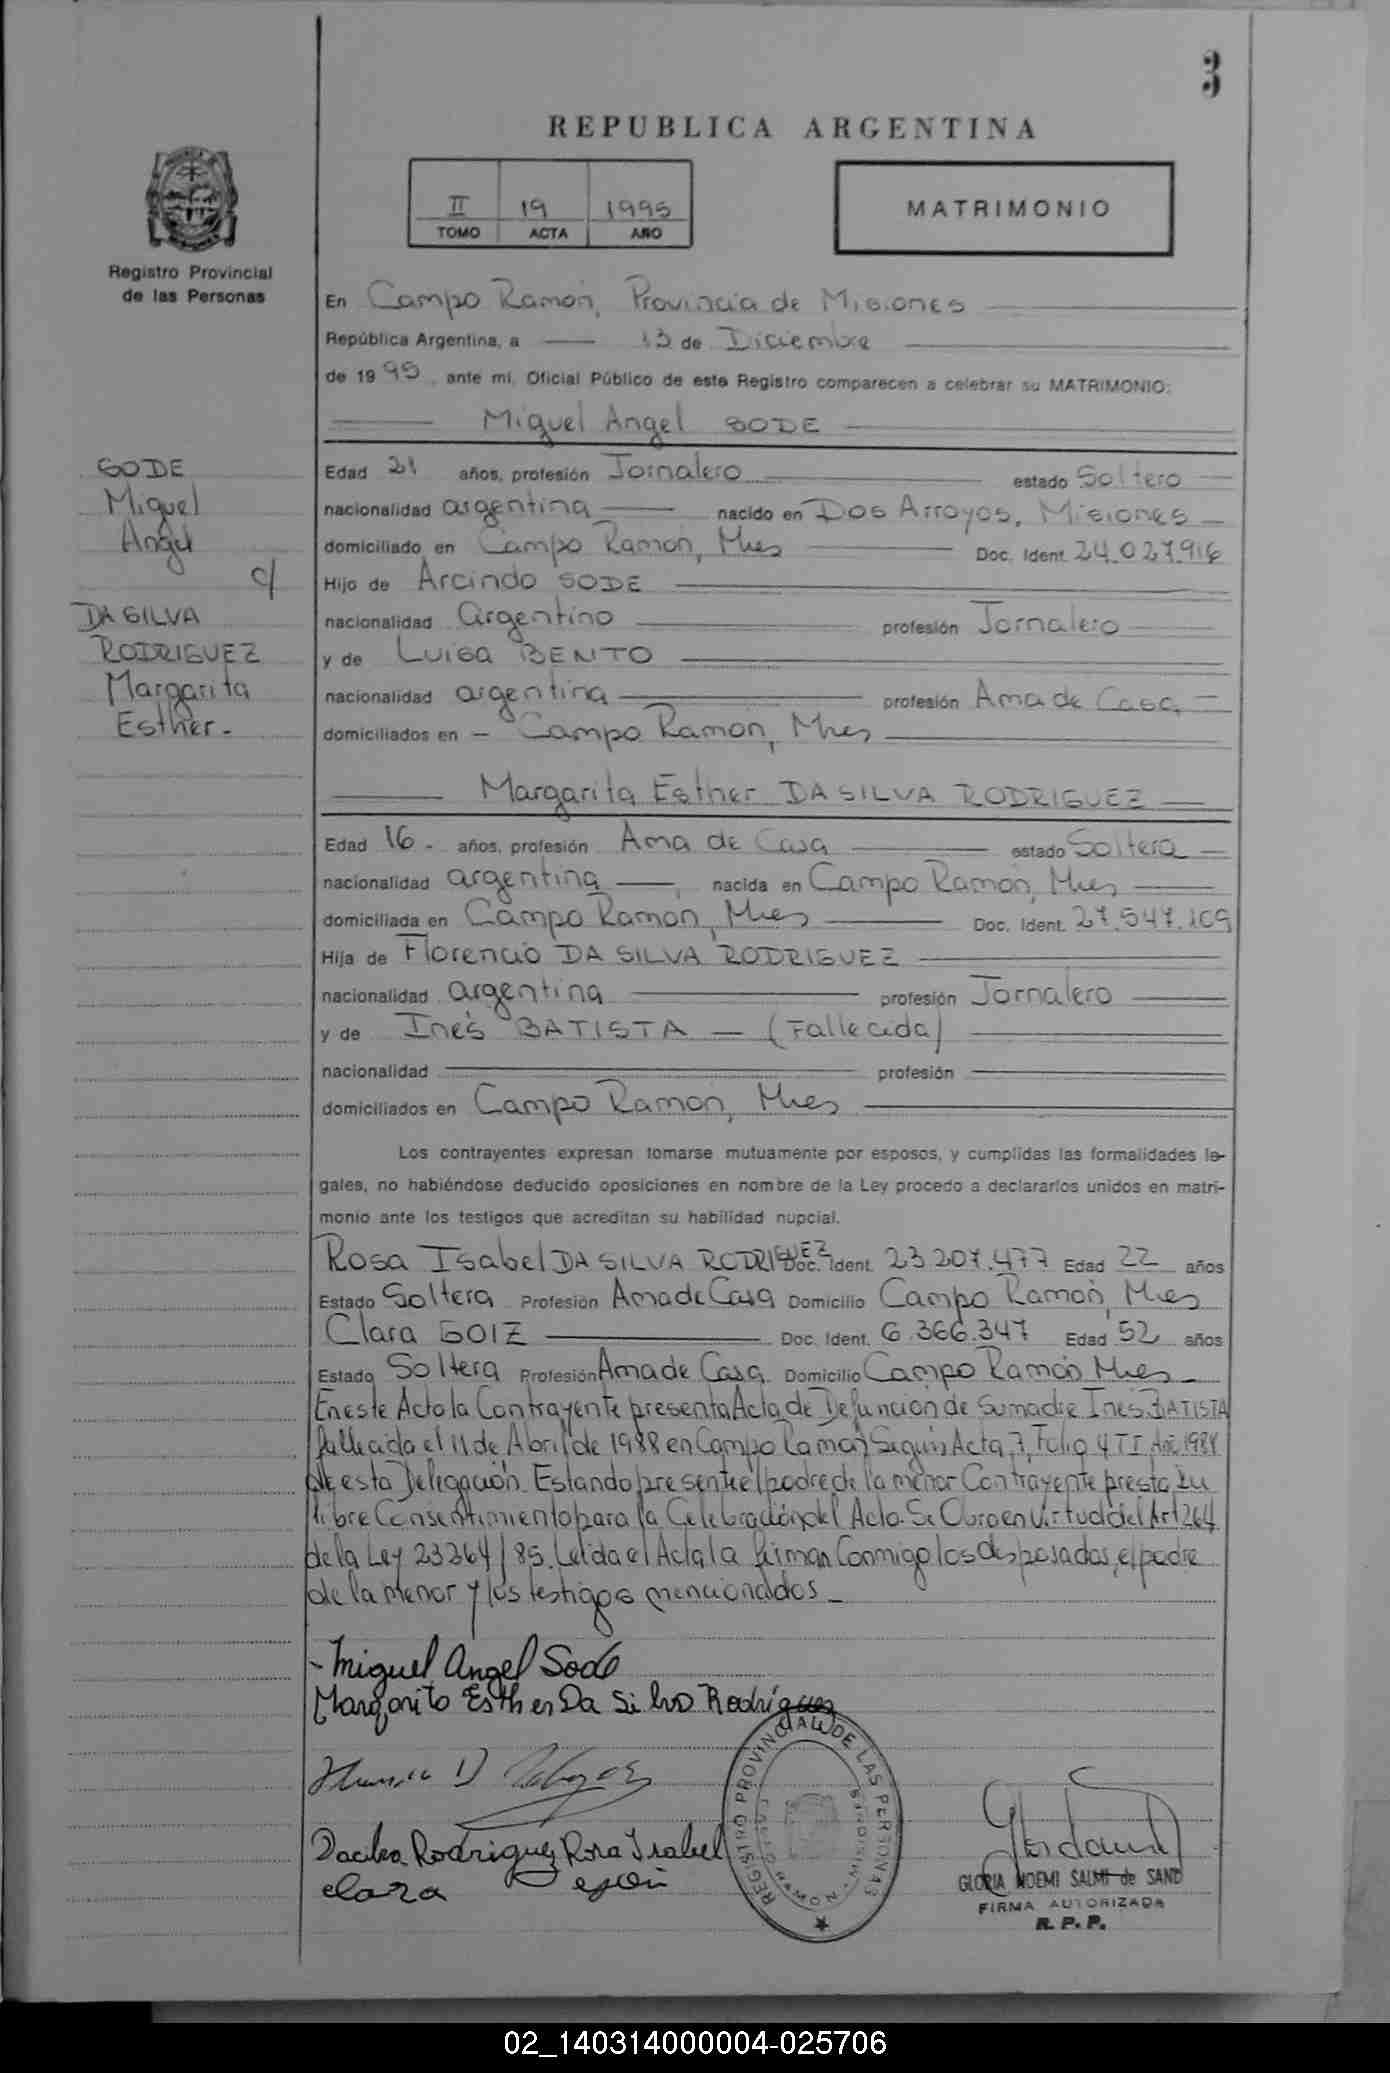 3
REPUBLICA ARGENTINA
II 19 1995
TOMO ACTA AÑO
MATRIMONIO
Registro Provincial
de las Personas
En Campo Ramón, Provincia de Misiones
República Argentina, a 13 de Diciembre
de 19 95, ante mí, Oficial Público de este Registro comparecen a celebrar su MATRIMONIO:
Miguel Angel SODE
SODE
Miguel
Angel
c/
DA SILVA
RODRIGUEZ
Margarita
Esther.-
Edad 21 años, profesión Jornalero estado Soltero
nacionalidad argentina nacido en Dos Arroyos, Misiones
domiciliado en Campo Ramón, Mnes Doc. Ident. 24.027.916
Hijo de Arcindo SODE
nacionalidad Argentino profesión Jornalero
y de Luisa BENTO
nacionalidad argentina profesión Ama de Casa
domiciliados en - Campo Ramón, Mnes
Margarita Esther DA SILVA RODRIGUEZ
Edad 16 - años, profesión Ama de Casa estado Soltera
nacionalidad argentina nacida en Campo Ramón, Mnes
domiciliada en Campo Ramón, Mnes Doc. Ident. 27.547.109
Hija de Florencio DA SILVA RODRIGUEZ
nacionalidad argentina profesión Jornalero
y de Inés BATISTA - (Fallecida)
nacionalidad profesión
domiciliados en Campo Ramón, Mnes
Los contrayentes expresan tomarse mutuamente por esposos, y cumplidas las formalidades le-
gales, no habiéndose deducido oposiciones en nombre de la Ley procedo a declararlos unidos en matri-
monio ante los testigos que acreditan su habilidad nupcial.
Rosa Isabel DA SILVA RODRIGUEZ Doc. Ident. 23 207.477 Edad 22 años
Estado Soltera Profesión Ama de Casa Domicilio Campo Ramón, Mnes
Clara GOIZ Doc. Ident. 6.366.347 Edad 52 años
Estado Soltera Profesión Ama de Casa Domicilio Campo Ramón Mnes
En este Acto la Contrayente presenta Acta de Defunción de Su madre Inés BATISTA
fallecida el 11 de Abril de 1988 en Campo Ramón Según Acta 7, Folio 4 TI Año 1988
de esta Delegación. Estando presente el padre de la menor Contrayente presta Su
libre Consentimiento para la Celebración del Acto. Se Obro en Virtud del Art 264
de la Ley 23264/85. Leída el Acta la firman Conmigo los desposados, el padre
de la menor y los testigos mencionados -
- Miguel Angel Sode
Margarita Esther Da Silva Rodriguez
Rodriguez Rosa Isabel
Clara
REGISTRO PROVINCIAL DE LAS PERSONAS
CAMPO RAMON - MISIONES
GLORIA NOEMI SALMI de SAND
FIRMA AUTORIZADA
R. P. P.
02_140314000004-025706